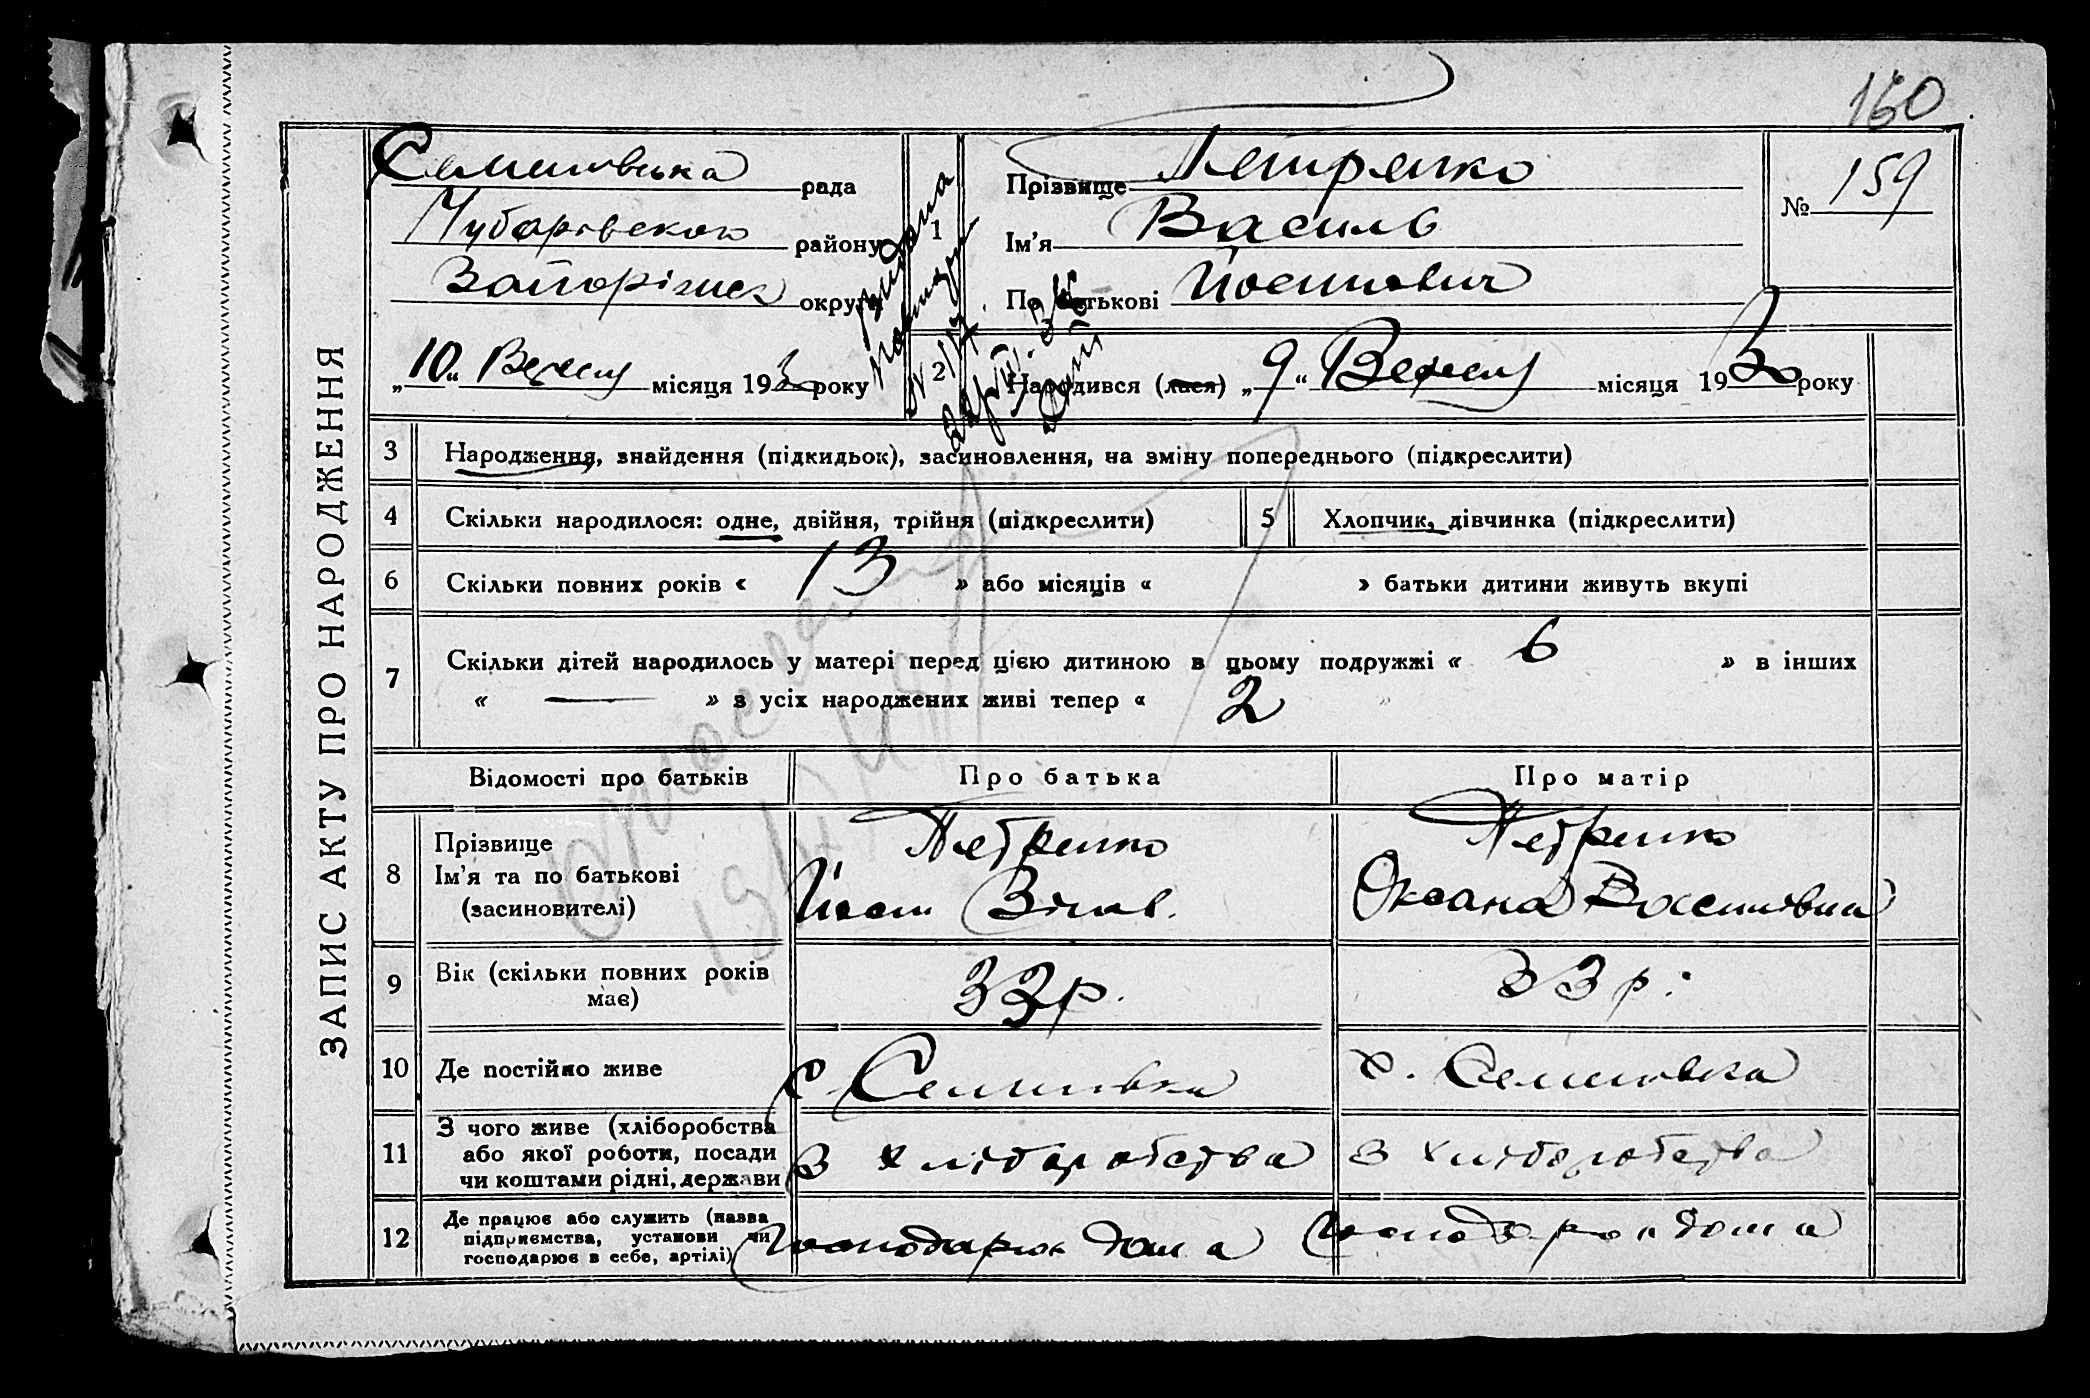 160
ЗАПИС АКТУ ПРО НАРОДЖЕННЯ
Семенівська рада
Чубарівського району
Запоріжск округи
„10“ Вересня місяця 1930 року
1
Прізвище Петренко
Ім'я Василь
По батькові Йосипович
№ 159
2
Народився (лася) „9“ Вересня місяця 1930 року
видана
3 Народження, знайдення (підкидьок), засиновлення, на зміну попереднього (підкреслити)
4 Скільки народилося: одне, двійня, трійня (підкреслити)
5 Хлопчик, дівчинка (підкреслити)
6 Скільки повних років « 13 » або місяців « » батьки дитини живуть вкупі
7 Скільки дітей народилось у матері перед цією дитиною в цьому подружжі « 6 » в інших
« — » з усіх народжених живі тепер « 2 »
Відомості про батьків Про батька Про матір
8 Прізвище
Ім'я та по батькові
(засиновителі)
Петренко
Йосип
Петренко
Оксана
9 Вік (скільки повних років
має)
33 р.
33 р.
10 Де постійно живе
с. Семенівка
с. Семенівка
11 З чого живе (хліборобства
або якої роботи, посади
чи коштами рідні, держави
З хліборобства
З хліборобства
12 Де працює або служить (назва
підприємства, установи чи
господарює в себе, артілі)
Господарює дома
Господарює дома